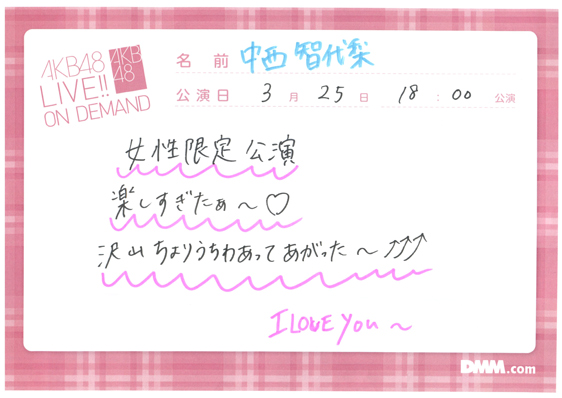 AKB48
LIVE!!
ON DEMAND
AKB
48
名前 中西智代梨
公演日 3月25日 18:00 公演
女性限定公演
楽しすぎたぁ〜♡
沢山ちよりうちわあってあがった〜↑↑↑
I LOVE you〜
DMM.com